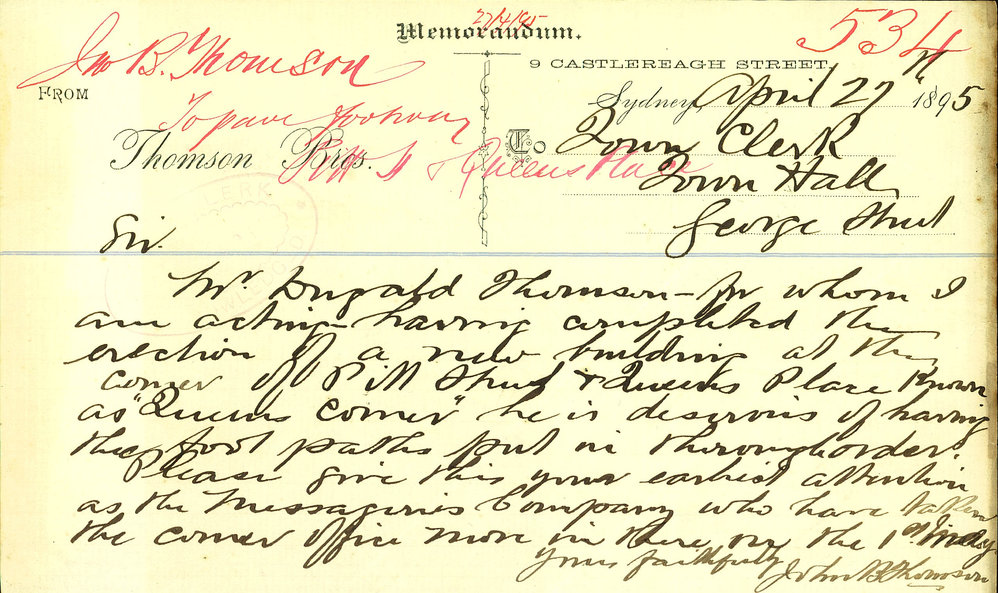 27/4/95
Memorandum.
534
Jno B. Thomson
9 CASTLEREAGH STREET,
FROM
Sydney, April 27th 1895
To pave footway
Thomson Bros.
To Town Clerk
Pitt St & Queens Place
Town Hall
George Street
Sir.
Mr Dugald Thomson - for whom I
am acting - having completed the
erection of a new building at the
corner of Pitt Street & Queens Place known
as "Queens Corner" he is desirous of having
the foot paths put in thorough order.
Please give this your earliest attention
as the Messageries Company who have taken
the corner office move in there on the 1st May
Yours faithfully
John B Thomson